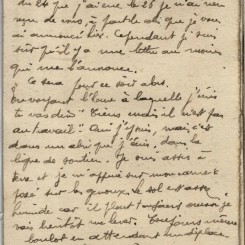 du 24 que j'ai eue le 26 je n'ai
de vous, à part le
ai annoncé hier. Cependant je suis
sûr qu'il y a une lettre au moins
qui me l'annonce.
Ce sera pour ce soir alors.
En voyant l'heure à laquelle j'écris
tu vas dire "Tiens mais il n'est pas
au travail" Oui j'y suis, mais c'est
dans un abri que j'écris, dans la
ligne de soutien. Je suis assis à
terre et je m'appuie sur mon carnet
posé sur les genoux. Le sol est assez
humide car il pleut toujours aussi je
vais bientôt me lever.
boulot en attendant un déplace